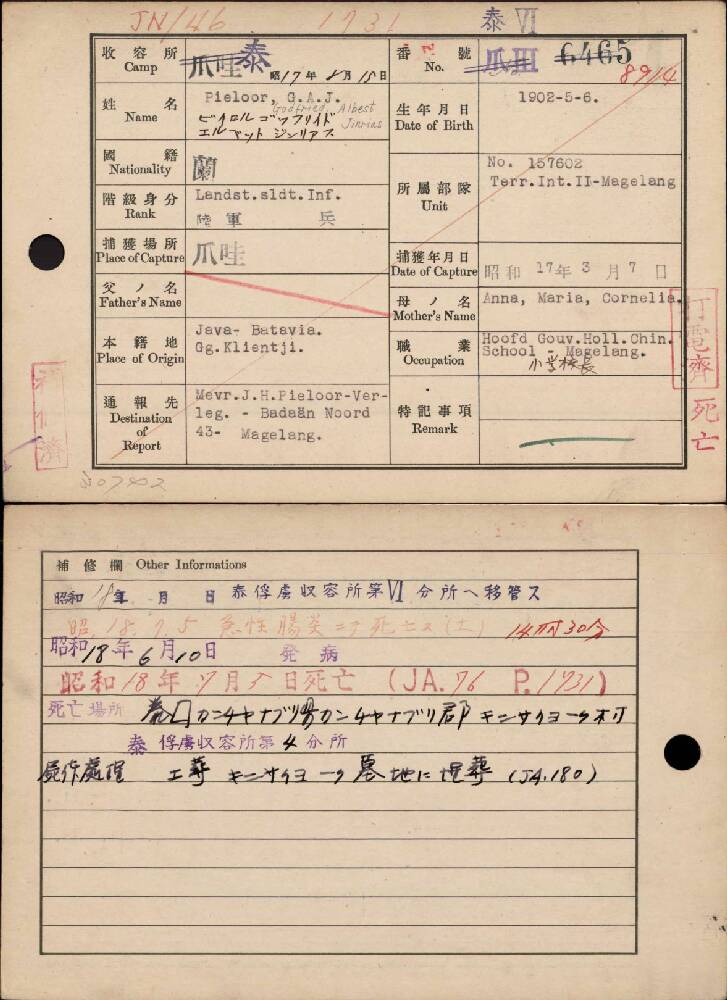 JN/46 1731 泰 VI
收容所 Camp 爪哇 泰 昭17年8月15日
番號 No. 爪III 6465 8914
姓名 Name Pieloor, G.A.J.
Godfried Albest
ピイロルゴツフリイド Jinrias
エルベツト ジンリアス
生年月日 Date of Birth 1902-5-6.
國籍 Nationality 蘭
階級身分 Rank Landst.sldt.Inf.
陸軍 兵
所屬部隊 Unit No. 157602
Terr.Int.II-Magelang
捕獲場所 Place of Capture 爪哇
捕獲年月日 Date of Capture 昭和 17年 3月 7日
父ノ名 Father's Name
母ノ名 Mother's Name Anna, Maria, Cornelia.
本籍地 Place of Origin Java- Batavia.
Gg.Klientji.
職業 Occupation Hoofd Gouv.Holl.Chin.
School - Magelang.
小学校長
通報先 Destination of Report Mevr.J.H.Pieloor-Ver-
leg. - Badaän Noord
43- Magelang.
特記事項 Remark
打電齊 死亡
補修欄 Other Informations
昭和 18年 月 日 泰俘虜収容所第VI分所ヘ移管ス
昭.18.7.5 急性腸炎ニテ死亡ス(土) 14時30分
昭和18年6月10日 発病
昭和18年7月5日死亡 (JA.76 P.1731)
死亡場所 泰国カンチヤナブリ県カンチヤナブリ郡 キンサイヨーク村
泰俘虜収容所第4分所
屍体處理 土葬 キンサイヨーク墓地に埋葬 (JA.180)